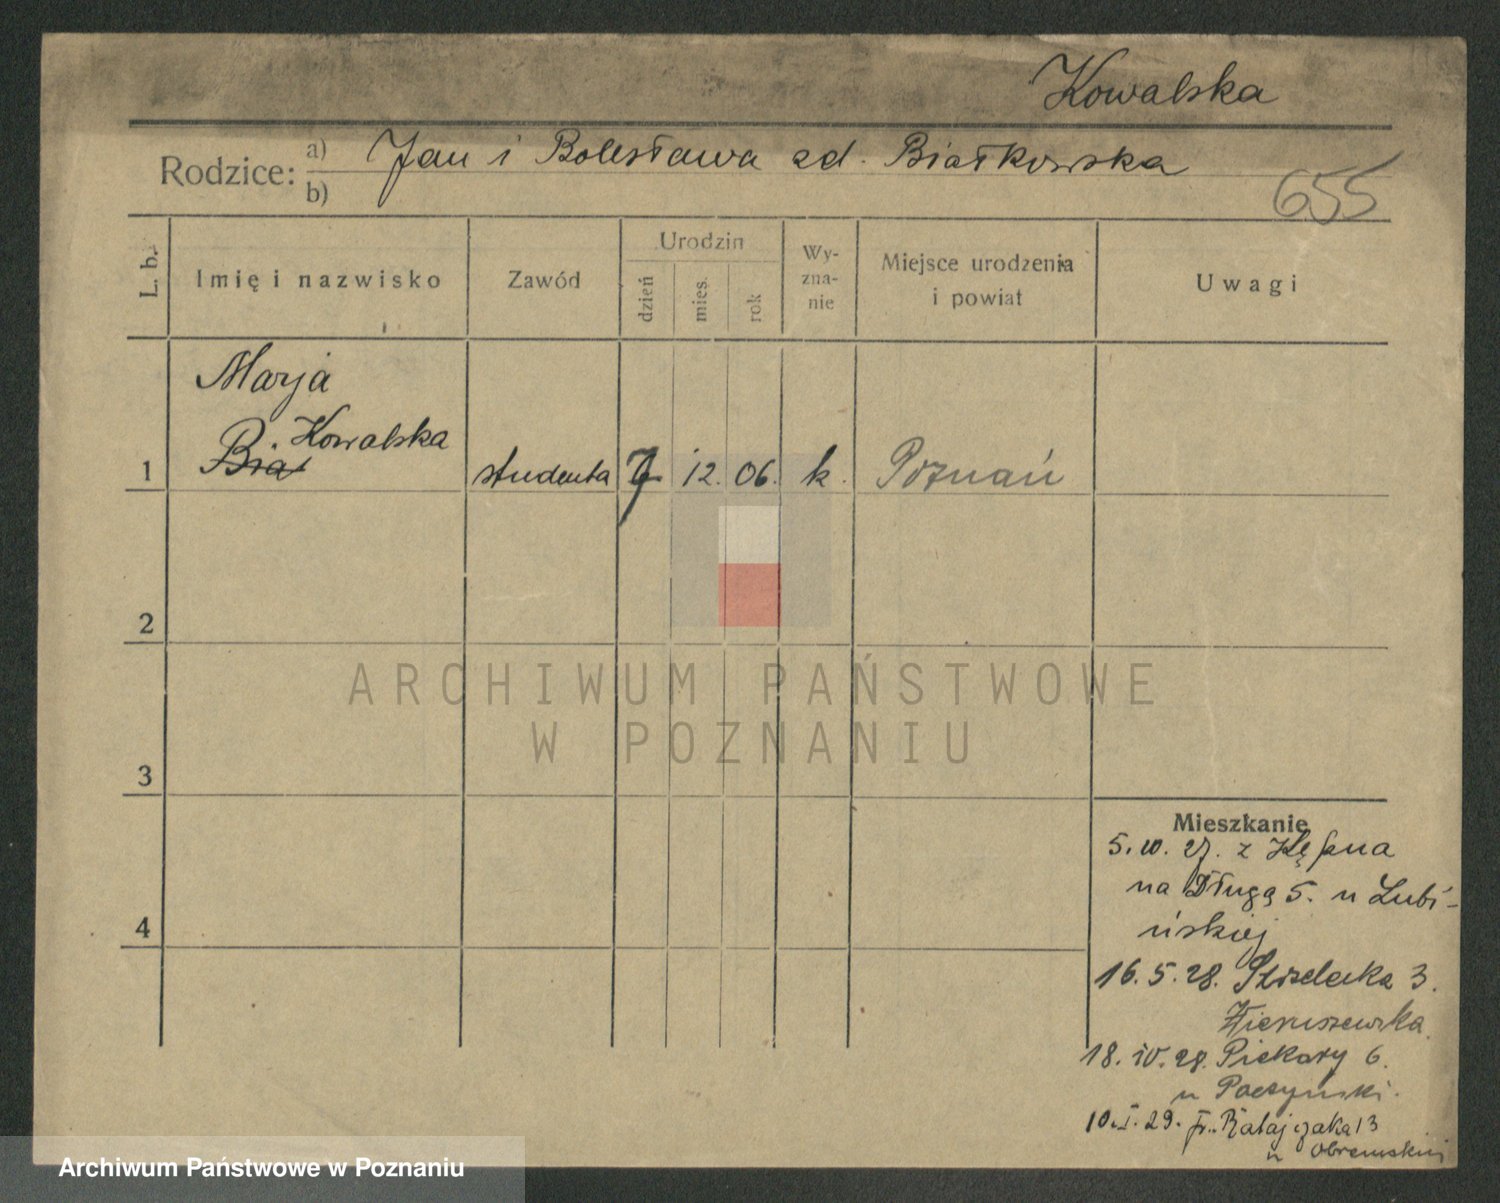 Kowalska
Rodzice: a) Jan i Bolesława zd. Białkowska
b)
655
L. b.
Imię i nazwisko
Zawód
Urodzin
dzień
mies.
rok
Wy-
zna-
nie
Miejsce urodzenia
i powiat
Uwagi
Marja
Kowalska
1 Biał studentka 7 12. 06. k. Poznań
2
ARCHIWUM PAŃSTWOWE
W POZNANIU
3
4
Mieszkanie
5.10.27. z Kępna
na Długą 5. u Lubi-
ńskiej
16.5.28. Strzelecka 3.
Wieruszewska
18.10.28. Piekary 6.
u
10.I.29. Fr. Ratajczaka 13
u
Archiwum Państwowe w Poznaniu